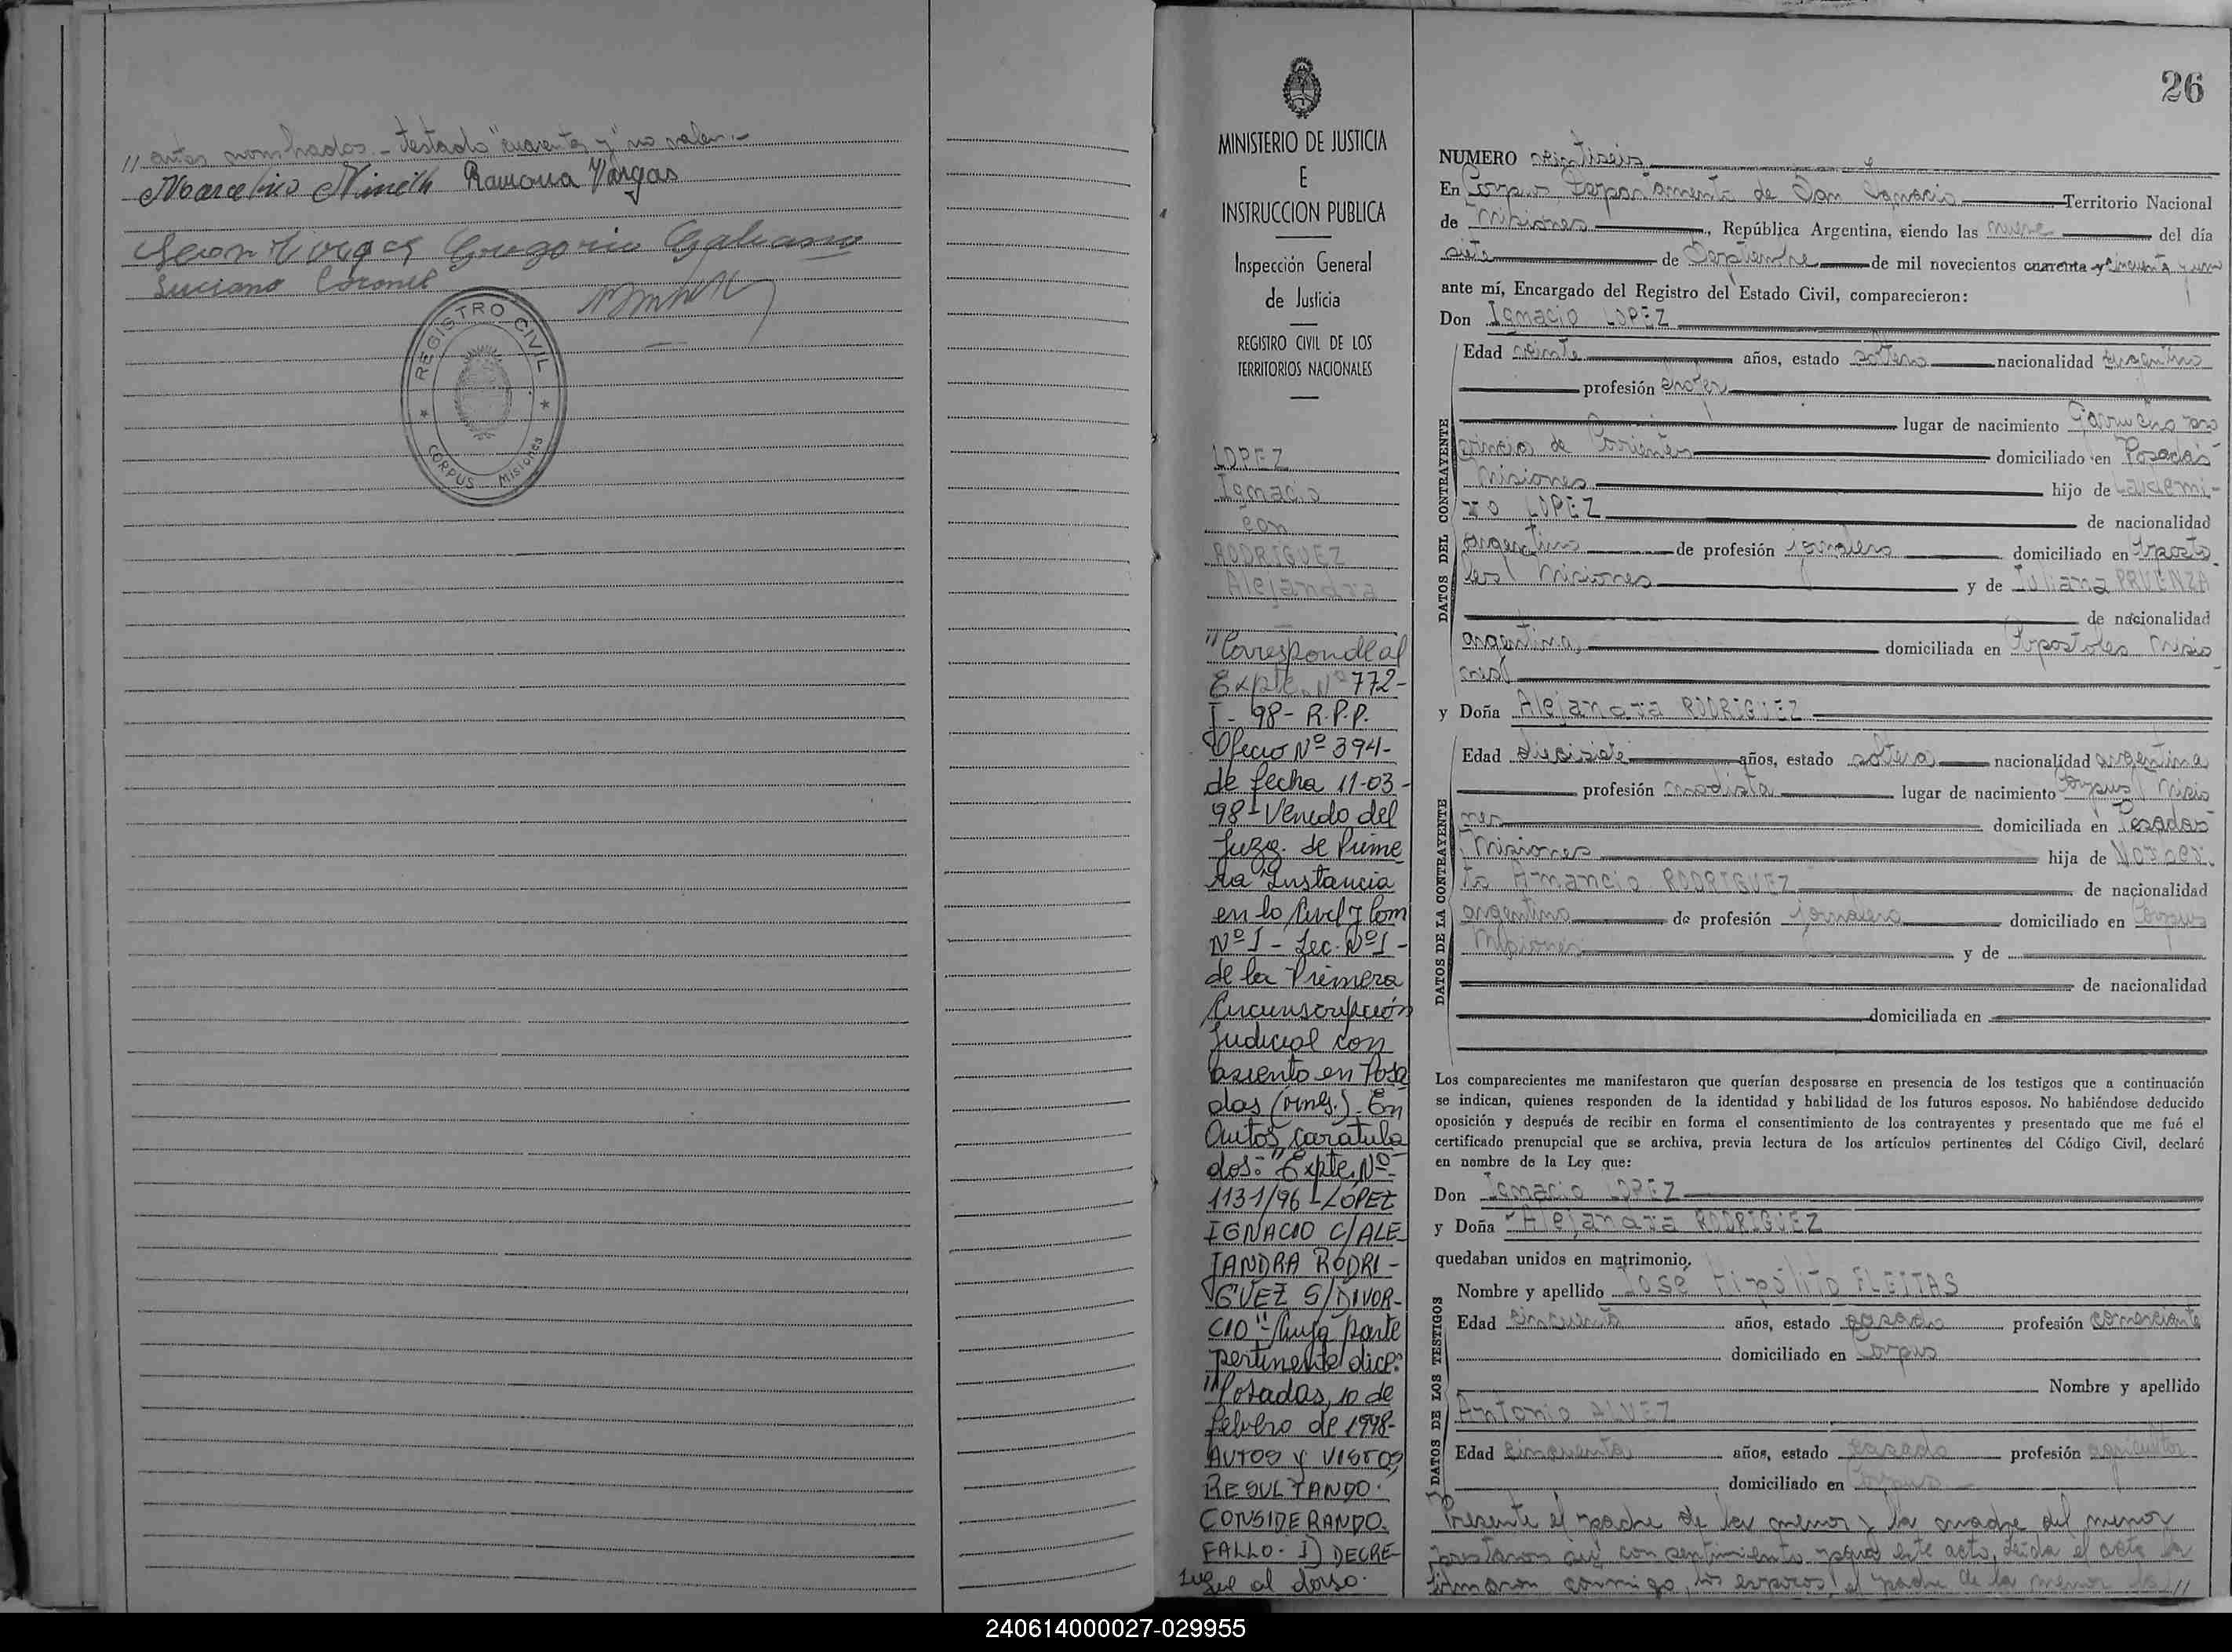 // antes nombrados.- testado "cuarenta y" no valen.-
Marcelino Ramona Vargas
Gregorio Galeano
Luciano Coronel
REGISTRO CIVIL
CORPUS Misiones
26
MINISTERIO DE JUSTICIA
E
INSTRUCCION PUBLICA
Inspección General
de Justicia
REGISTRO CIVIL DE LOS
TERRITORIOS NACIONALES
LOPEZ
Ignacio
con
RODRIGUEZ
Alejandra
"Corresponde al
Expte. Nº 772-
I - 98 - R.P.P.
Oficio Nº 394-
de fecha 11-03-
98- Venido del
Juzg. de Prime
ra Instancia
en lo Civil y Com
Nº I - Sec. Nº I -
de la Primera
Circunscripción
Judicial con
asiento en Posa
das (mnes.) - En
Autos caratula
dos: "Expte. Nº
1131/96 - LOPEZ
IGNACIO C/ALE-
JANDRA RODRI-
GUEZ S/DIVOR-
CIO" - Cuya parte
pertinente dice:
"Posadas, 10 de
febrero de 1998-
AUTOS Y VISTOS,
RESULTANDO.
CONSIDERANDO.
FALLO. I) DECRE-
Sigue al dorso.
NUMERO veintiseis
En Corpus Departamento de San Ignacio Territorio Nacional
de Misiones, República Argentina, siendo las nueve del día
siete de Septiembre de mil novecientos cuarenta y cincuenta y uno
ante mí, Encargado del Registro del Estado Civil, comparecieron:
Don Ignacio LOPEZ
DATOS DEL CONTRAYENTE
Edad veinte años, estado soltero nacionalidad argentino
profesión chofer
lugar de nacimiento Garruchos pro
vincia de Corrientes domiciliado en Posadas
Misiones hijo de
LOPEZ de nacionalidad
argentino de profesión jornalero domiciliado en Aposto
les Misiones y de Juliana
de nacionalidad
argentina, domiciliada en Apostoles Misio
nes
y Doña Alejandra RODRIGUEZ
DATOS DE LA CONTRAYENTE
Edad diecisiete años, estado soltera nacionalidad argentina
profesión modista lugar de nacimiento Corpus Misio
nes domiciliada en Posadas
Misiones hija de Norber
to Amancio RODRIGUEZ de nacionalidad
argentino de profesión jornalero domiciliado en Corpus
Misiones y de
de nacionalidad
domiciliada en
Los comparecientes me manifestaron que querían desposarse en presencia de los testigos que a continuación
se indican, quienes responden de la identidad y habilidad de los futuros esposos. No habiéndose deducido
oposición y después de recibir en forma el consentimiento de los contrayentes y presentado que me fué el
certificado prenupcial que se archiva, previa lectura de los artículos pertinentes del Código Civil, declaré
en nombre de la Ley que:
Don Ignacio LOPEZ
y Doña Alejandra RODRIGUEZ
quedaban unidos en matrimonio.
DATOS DE LOS TESTIGOS
Nombre y apellido José Hipólito FLEITAS
Edad cincuenta años, estado casado profesión comerciante
domiciliado en Corpus
Nombre y apellido
Antonio ALVEZ
Edad cincuenta años, estado casado profesión agricultor
domiciliado en Corpus
Presente el padre de la menor y la madre del menor
prestaron su consentimiento para este acto, leida el acta la
firmaron conmigo, los esposos, el padre de la menor la//
240614000027-029955